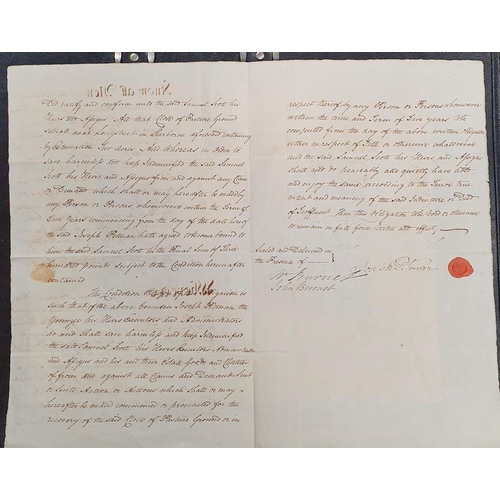 Know all Men
did ratify and confirm unto the said Samuel Scott his
Heirs and Assigns All that Close of Pasture Ground
Situat near Longstreet in Sherborne aforesaid containing
by Estimation Two Acres And Whereas in Order to
save harmless and keep Indemnified the said Samuel
Scott his Heirs and Assigns from and against any Claim
or Demand which shall or may hereafter be made by
any Person or Persons whomsoever within the Term of
Five Years commencing from the day of the date hereof
the said Joseph Pitman hath agreed to become bound to
him the said Samuel Scott in the Penal Sum of Three
hundred pounds subject to the Condition herein after
contained
The Condition of this Obligation is
such that if the above bounden Joseph Pitman the
Younger his Heirs Executors and Administrators
do and shall save harmless and keep Indemnified
the said Samuel Scott his Heirs Executors Administrators
and Assigns and his and their Estate Goods and Chattels
of from and against all Claims and Demands Suit
or Suits Action or Actions which shall or may
hereafter be made commenced or prosecuted for the
recovery of the said Close of Pasture Ground or in
respect thereof by any Person or Persons whomsoever
within the time and Term of Five Years to be
computed from the day of the above written
either in respect of Title or otherwise whatsoever
and the said Samuel Scott his Heirs and Assigns
shall and do peaceably and quietly have hold
and enjoy the same according to the true
and meaning of the said Indenture or Deed
of Feoffment Then this Obligation to be Void or otherwise
to remain in full force virtue and effect
Sealed and Delivered in
the Presence of
Joseph Pitman
John Burnet